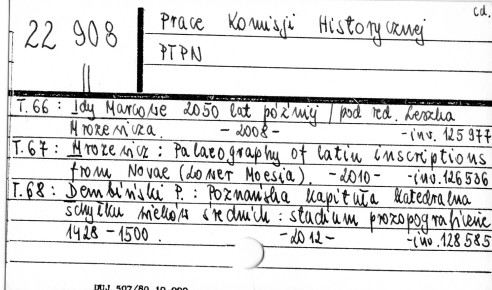 cd.
22 908
Prace Komisji Historycznej
PTPN
T. 66 : Idy Marcowe 2050 lat później / pod red. Leszka
Mrozewicza. - 2008 - - inv. 125977
T. 67 : Mrozewicz : Palaeography of latin inscriptions
from Novae (Lower Moesia). - 2010 - - inv. 126506
T. 68 : Dembiński P. : Poznańska kapituła katedralna
schyłku wieków średnich : studium prozopograficzne
1428 - 1500. - 2012 - - inv. 128585
DUJ 507/80 10 000